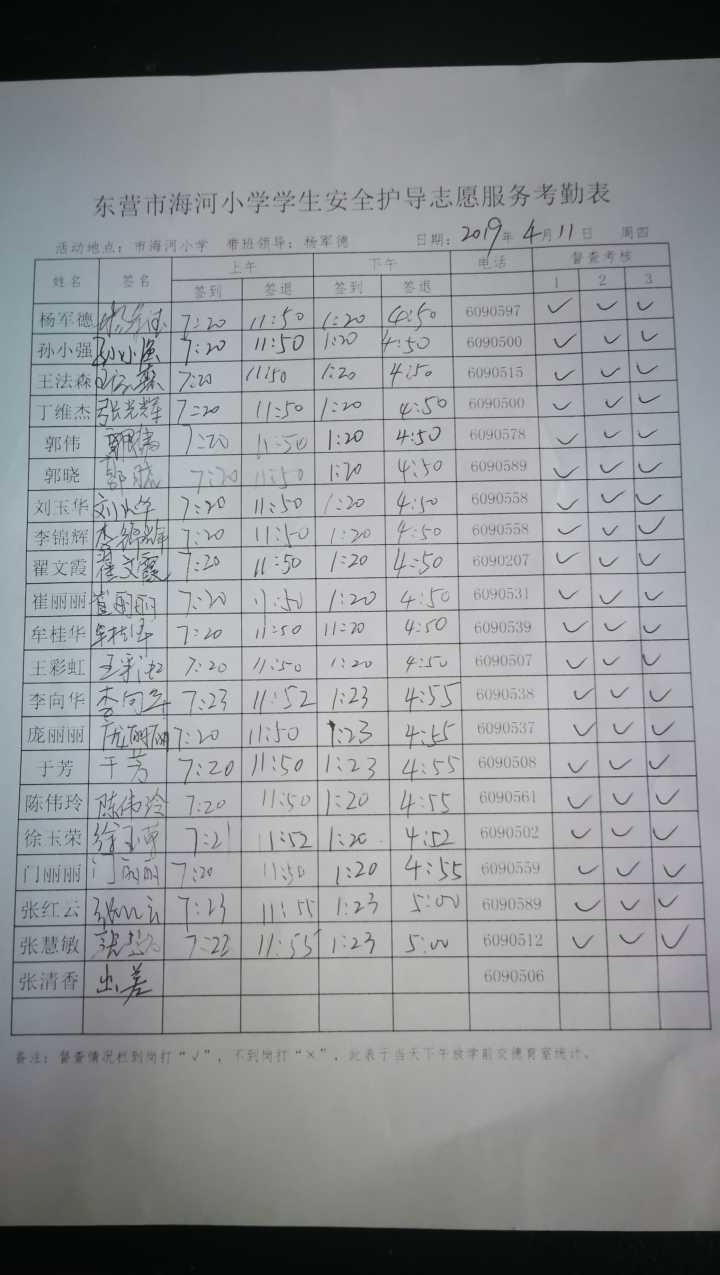 东营市海河小学学生安全护导志愿服务考勤表
活动地点：市海河小学 带班领导：杨军德 日期：2019年4月11日 周四
姓名 签名 上午 下午 电话 督查考核
签到 签退 签到 签退 1 2 3
杨军德 杨军德 7:20 11:50 1:20 4:50 6090597 ✓ ✓ ✓
孙小强 孙小强 7:20 11:50 1:20 4:50 6090500 ✓ ✓ ✓
王法森 王法森 7:20 11:50 1:20 4:50 6090515 ✓ ✓ ✓
丁维杰 张光辉 7:20 11:50 1:20 4:50 6090500 ✓ ✓ ✓
郭伟 郭伟 7:20 11:50 1:20 4:50 6090578 ✓ ✓ ✓
郭晓 郭晓 7:20 11:50 1:20 4:50 6090589 ✓ ✓ ✓
刘玉华 刘玉华 7:20 11:50 1:20 4:50 6090558 ✓ ✓ ✓
李锦辉 李锦辉 7:20 11:50 1:20 4:50 6090558 ✓ ✓ ✓
翟文霞 翟文霞 7:20 11:50 1:20 4:50 6090207 ✓ ✓ ✓
崔丽丽 崔丽丽 7:20 11:50 1:20 4:50 6090531 ✓ ✓ ✓
牟桂华 牟桂华 7:20 11:50 11:20 4:50 6090539 ✓ ✓ ✓
王彩虹 王彩虹 7:20 11:50 1:20 4:50 6090507 ✓ ✓ ✓
李向华 李向华 7:23 11:52 1:23 4:55 6090538 ✓ ✓ ✓
庞丽丽 庞丽丽 7:20 11:50 1:23 4:55 6090537 ✓ ✓ ✓
于芳 于芳 7:20 11:50 1:23 4:55 6090508 ✓ ✓ ✓
陈伟玲 陈伟玲 7:20 11:50 1:20 4:55 6090561 ✓ ✓ ✓
徐玉荣 徐玉荣 7:21 11:52 1:20 4:52 6090502 ✓ ✓ ✓
门丽丽 门丽丽 7:20 11:50 1:20 4:55 6090559 ✓ ✓ ✓
张红云 张红云 7:23 11:55 1:23 5:00 6090589 ✓ ✓ ✓
张慧敏 张慧敏 7:23 11:55 1:23 5:00 6090512 ✓ ✓ ✓
张清香 出差 6090506
备注：督查情况栏到岗打“√”，不到岗打“×”，此表于当天下午放学前交德育室统计。